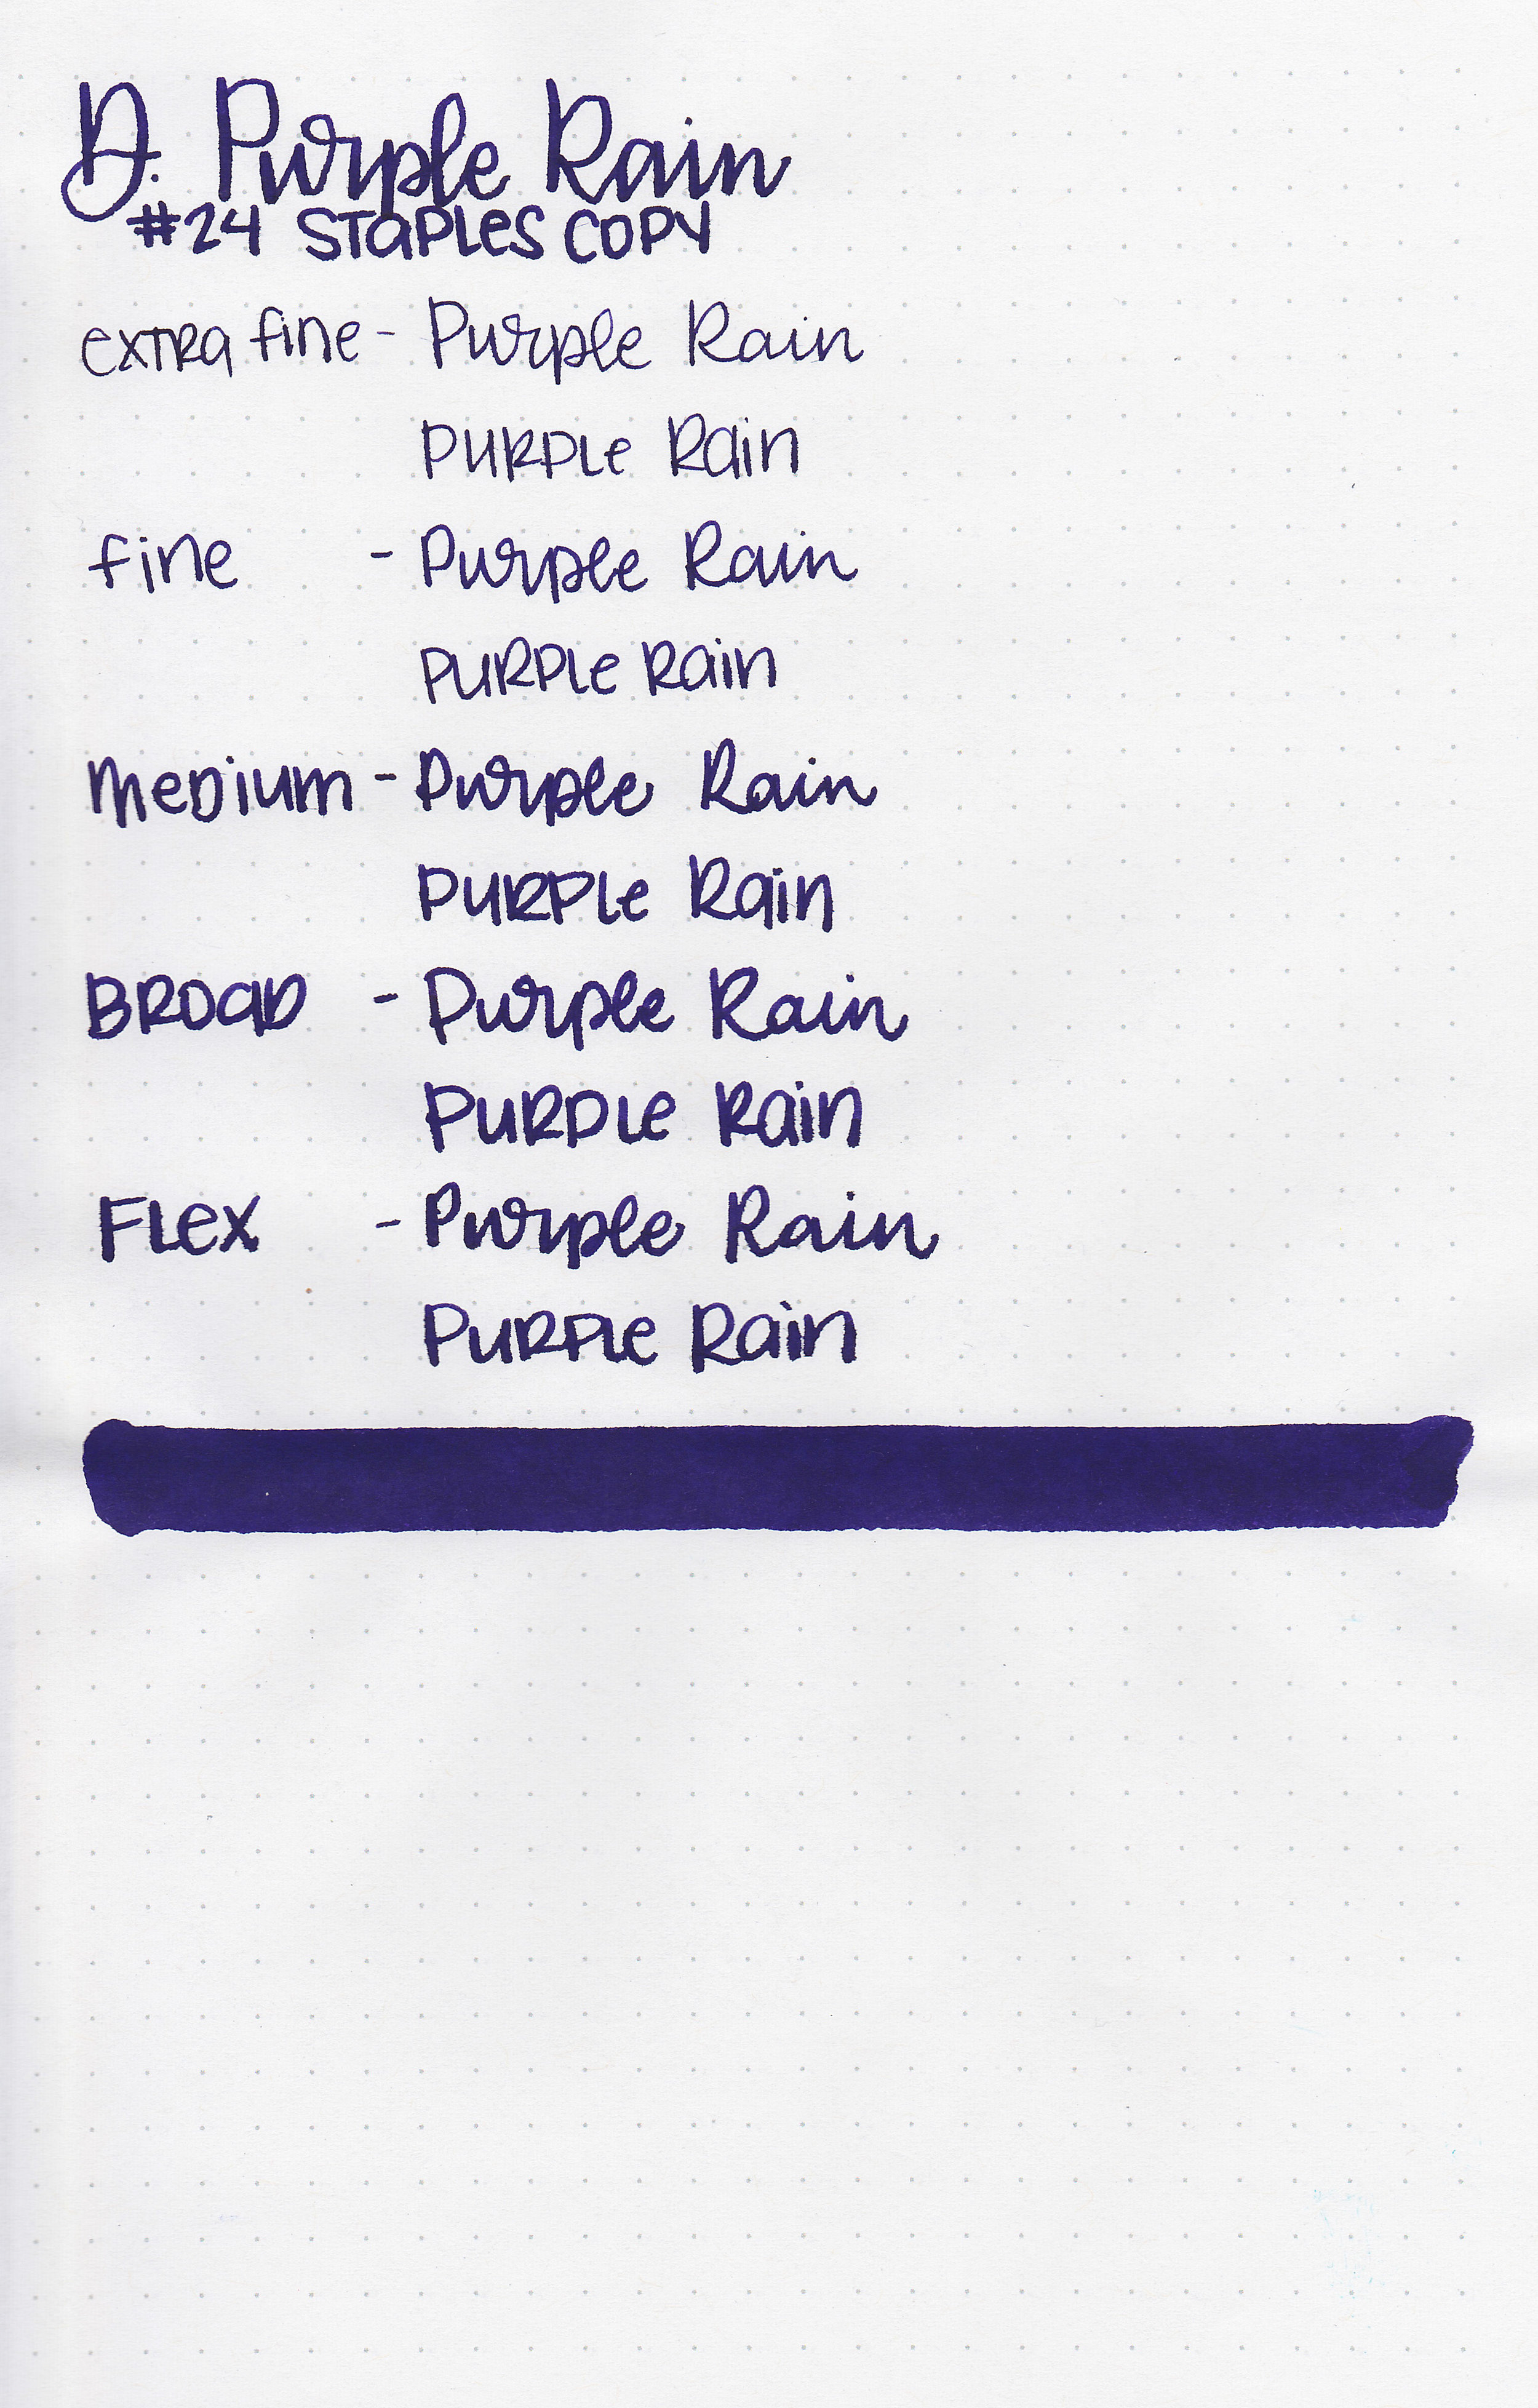 D. Purple Rain
#24 STaPLes COPY
exTRa fine - Purple Rain
PURPLe Rain
fine - Purple Rain
PURPLe Rain
MeDium - Purple Rain
PURPLe Rain
BROaD - Purple Rain
PURPLe Rain
FLex - Purple Rain
PURPLe Rain